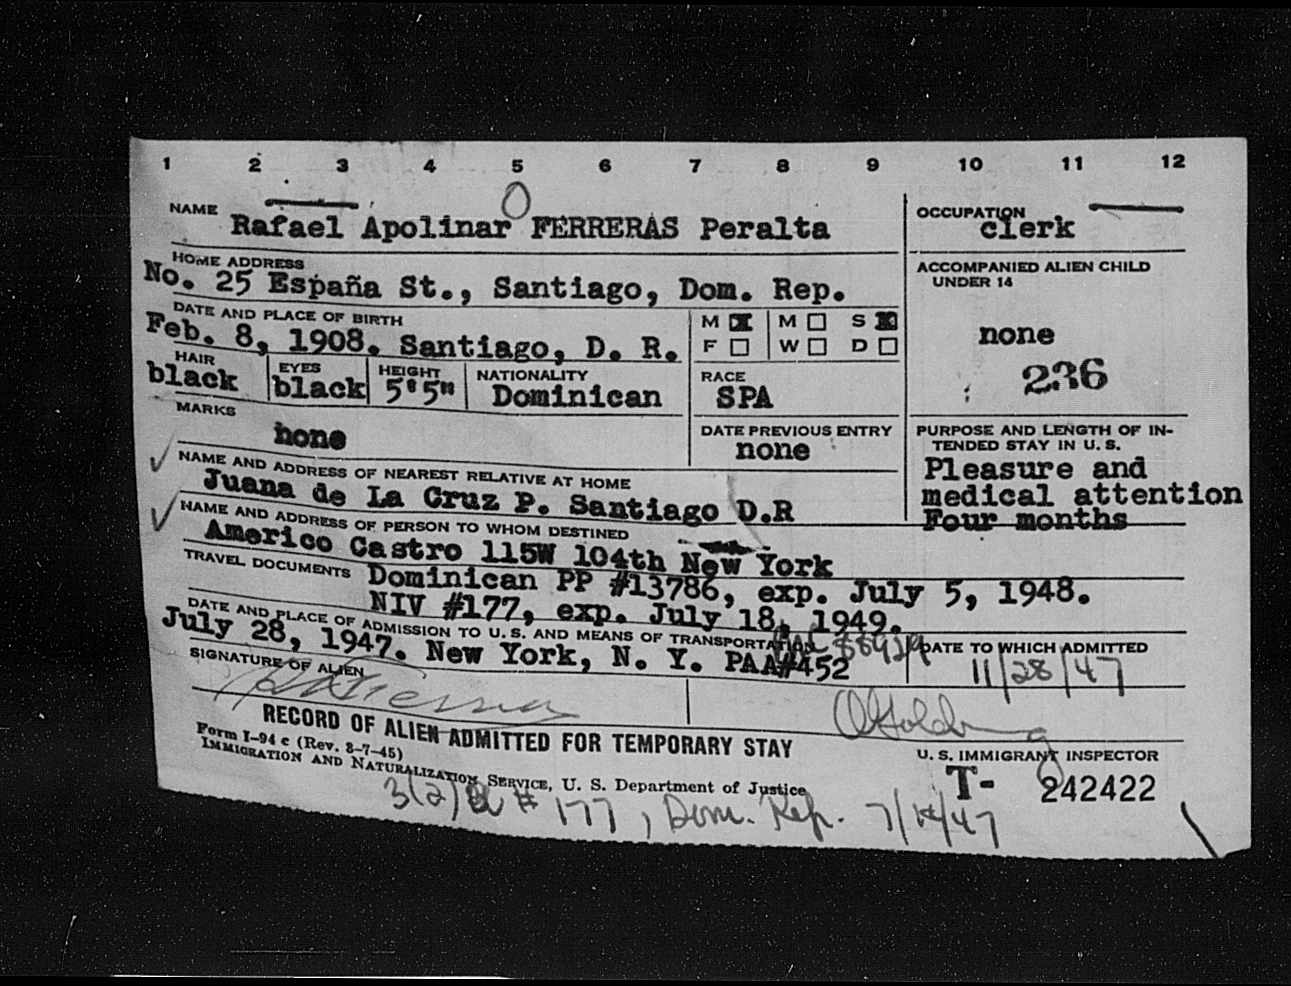 1 2 3 4 5 6 7 8 9 10 11 12
NAME Rafael Apolinar FERRERAS Peralta
OCCUPATION clerk
HOME ADDRESS
No. 25 España St., Santiago, Dom. Rep.
ACCOMPANIED ALIEN CHILD
UNDER 14
none
236
DATE AND PLACE OF BIRTH
Feb. 8, 1908. Santiago, D. R.
M M S
F W D
HAIR black
EYES black
HEIGHT 5'5"
NATIONALITY Dominican
RACE
SPA
MARKS
none
DATE PREVIOUS ENTRY
none
PURPOSE AND LENGTH OF IN-
TENDED STAY IN U. S.
Pleasure and
medical attention
Four months
NAME AND ADDRESS OF NEAREST RELATIVE AT HOME
Juana de La Cruz P. Santiago D.R
NAME AND ADDRESS OF PERSON TO WHOM DESTINED
Americo Castro 115W 104th New York
TRAVEL DOCUMENTS Dominican PP #13786, exp. July 5, 1948.
NIV #177, exp. July 18, 1949.
DATE AND PLACE OF ADMISSION TO U. S. AND MEANS OF TRANSPORTATION
July 28, 1947. New York, N. Y. PAA#452
DATE TO WHICH ADMITTED
11/28/47
SIGNATURE OF ALIEN
RECORD OF ALIEN ADMITTED FOR TEMPORARY STAY
Form I-94 c (Rev. 8-7-45)
IMMIGRATION AND NATURALIZATION SERVICE, U. S. Department of Justice
U. S. IMMIGRANT INSPECTOR
T- 242422
3(2) # 177, Dom. Rep. 7/18/47